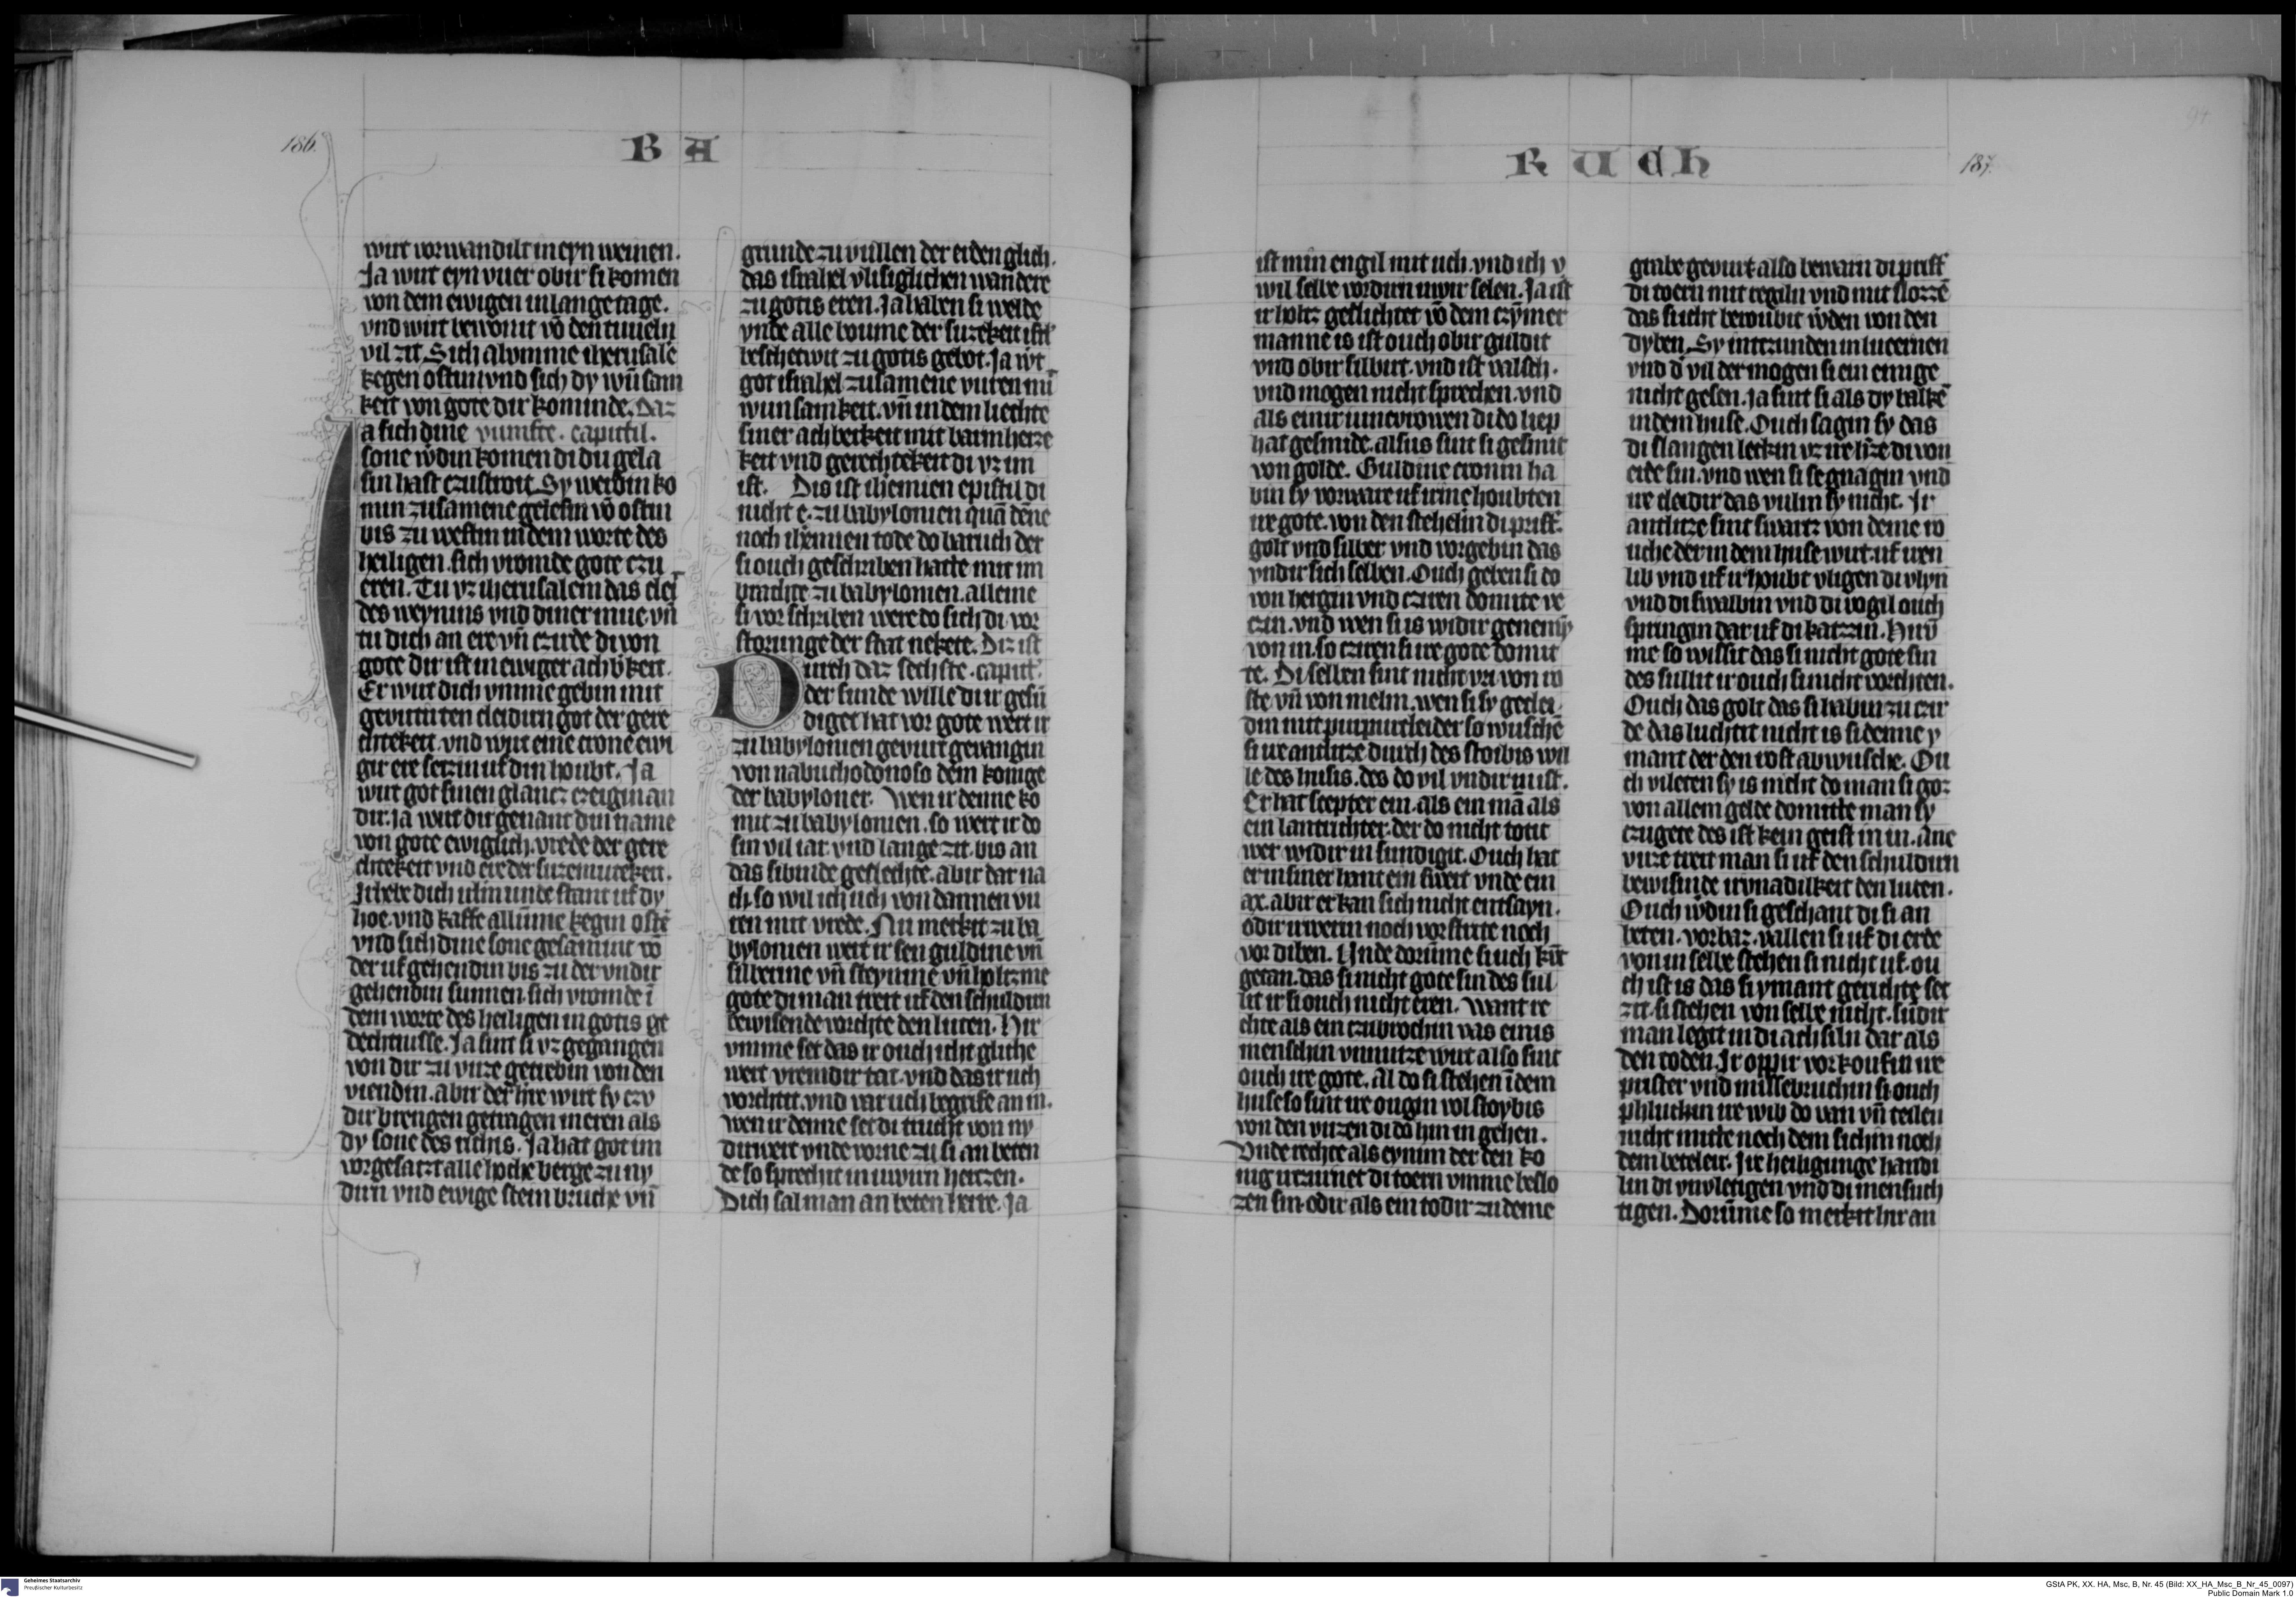 186.
B A
wirt vorwandilt in eyn weinen.
Ja wirt eyn vuer obir si komen
von dem ewigen in lange tage.
vnd wirt bewonit vō den tuueln
vil zit. Sich al vmme iherusalē
kegen ostin vnd sich dy wūsam
keit von gote dir kominde. Daz
a sich dine vumfte. capittil.
sone wdin komen di du gela
sin hast czustroit. Sy werdin ko
min zusamene gelesin vō ostin
bis zu westin in dem worte des
heiligen. sich vromde gote czu
eren. Tu vz iherusalem das cleit
des weynins vnd diner mue. vn̄
tu dich an ere vn̄ czirde di von
gote dir ist in ewiger achbkeit.
Er wirt dich vmme gebin mit
gevutirten cleidirn got der gere
chtekeit. vnd wirt eine crone ewi
gir ere setzin uf din houbt. Ja
wirt got sinen glancz czeigin an
dir. ja wirt dir genant din name
von gote ewiglich. vrede der gere
chtekeit vnd ere der suzemutekeit.
Irhebe dich ihrlm unde stant uf dy
hoe. vnd kaffe allūme kegin ostē
vnd sich dine sone gesamnit vō
der uf gehendin bis zu der vndir
gehendin sunnen. sich vromde ī
dem worte des heiligen in gotis ge
dechtnisse. Ja sint si vz gegangen
von dir zu vuze getrebin von den
viendin. abir der hre wirt sy czv
dir brengen getragen in eren als
dy sone des richis. Ja hat got im
vorgesatzt alle hoche berge zu ny
dirn vnd ewige stein bruche vn̄
grunde zu vullen der erden glich.
das israhel vlisiglichen wandere
zu gotis eren. Ja haben si welde
vnde alle boume der suzekeit isrl
beschetwit zu gotis gebot. Ja wirt
got israhel zusamene vuren mī
wunsamkeit. vn̄ in dem liechte
siner achberkeit mit barmherze
keit vnd gerechtekeit di vz im
ist. Dis ist ihemien epistil di
nicht e. zu babylonien quā dēne
noch ihemien tode do baruch der
si ouch geschriben hatte mit im
brachte zu babylonien. alleine
si vor schriben were do sich di vor
storunge der stat nekete. Diz ist
Durch daz sechste. capitt.
der sunde wille di ir gesū
diget hat vor gote wert ir
zu babylonien gevurt gevangin
von nabuchodonoso dem konige
der babyloner. Wen ir denne ko
mit zu babylonien. so wert ir do
sin vil iar. vnd lange zit. bis an
das sibinde geslechte. abir dar na
ch. so wil ich uch von dannen vu
ren mit vrede. Nu merkit zu ba
bylonien wert ir sen guldine vn̄
silberine vn̄ steynine vn̄ holtzine
gote di man treit uf den schuldirn
bewisende vorchte den luten. Hir
vmme set das ir ouch icht gliche
wert vremdir tat. vnd das ir uch
vorchtit. vnd var uch begrife an in.
wen ir denne set di trucht von ny
dirwert vnde vorne zu si an beten
de so sprechit in uwirn hertzen.
Dich sal man an beten herre. Ja
187.
R U C H
94
ist min engil mit uch. vnd ich v
wil selbe vordirn uwir selen. Ja ist
ir holtz geslichtet vō dem czymer
manne is ist ouch obir guldit
vnd obir silbirt. vnd ist valsch.
vnd mogen nicht sprechen. vnd
als einir iuncvrowen di do liep
hat gesmide. alsus sint si gesmit
von golde. Guldine cronin ha
bin sy vorware uf irme houbten
ire gote. von den stehelin di prist.
golt vnd silber. vnd vorgebin das
vndir sich selben. Ouch geben si do
von hergin vnd cziren domite re
czin. vnd wen si is widir genemī
von in. so cziren si ire gote domit
te. Di selben sint nicht vri von ro
ste vn̄ von melm. wen si sy geclei
din mit purpurcleider so wuschē
si ire anclitze durch des stoibis wil
le des husis. des do vil vndir in ist.
Er hat scepter ein. als ein mā als
ein lantrichter. der do nicht totit
wer widir in sundigit. Ouch hat
er in siner hant ein swert vnde ein
ax. abir er kan sich nicht entsayn.
odir irwerin noch vor strite noch
vor diben. Unde dorūme si uch kūt
getan. das si nicht gote sin des sul
lit ir si ouch nicht eren. Want re
chte als ein czubrochin vas einis
menschin vnnutze wirt also sint
ouch ire gote. Al do si stehen ī dem
huse so sint ire ougin vol stoybis
von den vuzen di do hin in gehen.
Vnde rechte als eynim der den ko
nig irczurnet di toern vmme beslo
zen sin. odir als ein todir zu deme
grabe gevurt also bewarn di prist
di toern mit regiln vnd mit slozzē
das si icht beroubit wden von den
dyben. Sy intczunden in lucernen
vnd d vil der mogen si ein einige
nicht gesen. Ja sint si als dy balkē
in dem huse. Ouch sagin sy das
di slangen leckin vz ire hze di von
erde sin. vnd wen si se gnagin vnd
ire cleidir das vulin sy nicht. Ir
antlitze sint swartz von deme ro
uche der in dem huse wirt. uf iren
lib vnd uf ir houbt vligen di vlyn
vnd di swalbin vnd di vogil ouch
springin dar uf di katzzin. Hirv̄
me so wissit das si nicht gote sin
des sullit ir ouch si nicht vorchten.
Ouch das golt das si habin zu czir
de das luchtit nicht is si denne y
mant der den rost abwusche. Ou
ch vileten sy is nicht do man si goz
von allem gelde domitte man sy
czugete des ist kein geist in in. Ane
vuze treit man si uf den schuldirn
bewisinde ir vnadilkeit den luten.
Ouch wdin si geschant di si an
beten. vorbaz. vallen si uf di erde
von in selbe stehen si nicht uf. ou
ch ist is das si ymant gerichte set
zit. si stehen von selbe nicht. sūdir
man legit in di achsiln dar als
den toden. Ir oppir vorkoufin ire
prister vnd missebruchin si ouch
phluckin ire wib do van vn̄ teilen
nicht mitte noch dem sichin noch
dem beteler. Ire heiligunge handi
lin di vnvletigen vnd di mensuch
tigen. Dorūme so merkit hir an
Geheimes Staatsarchiv
Preußischer Kulturbesitz
GStA PK, XX. HA, Msc, B, Nr. 45 (Bild: XX_HA_Msc_B_Nr_45_0097)
Public Domain Mark 1.0